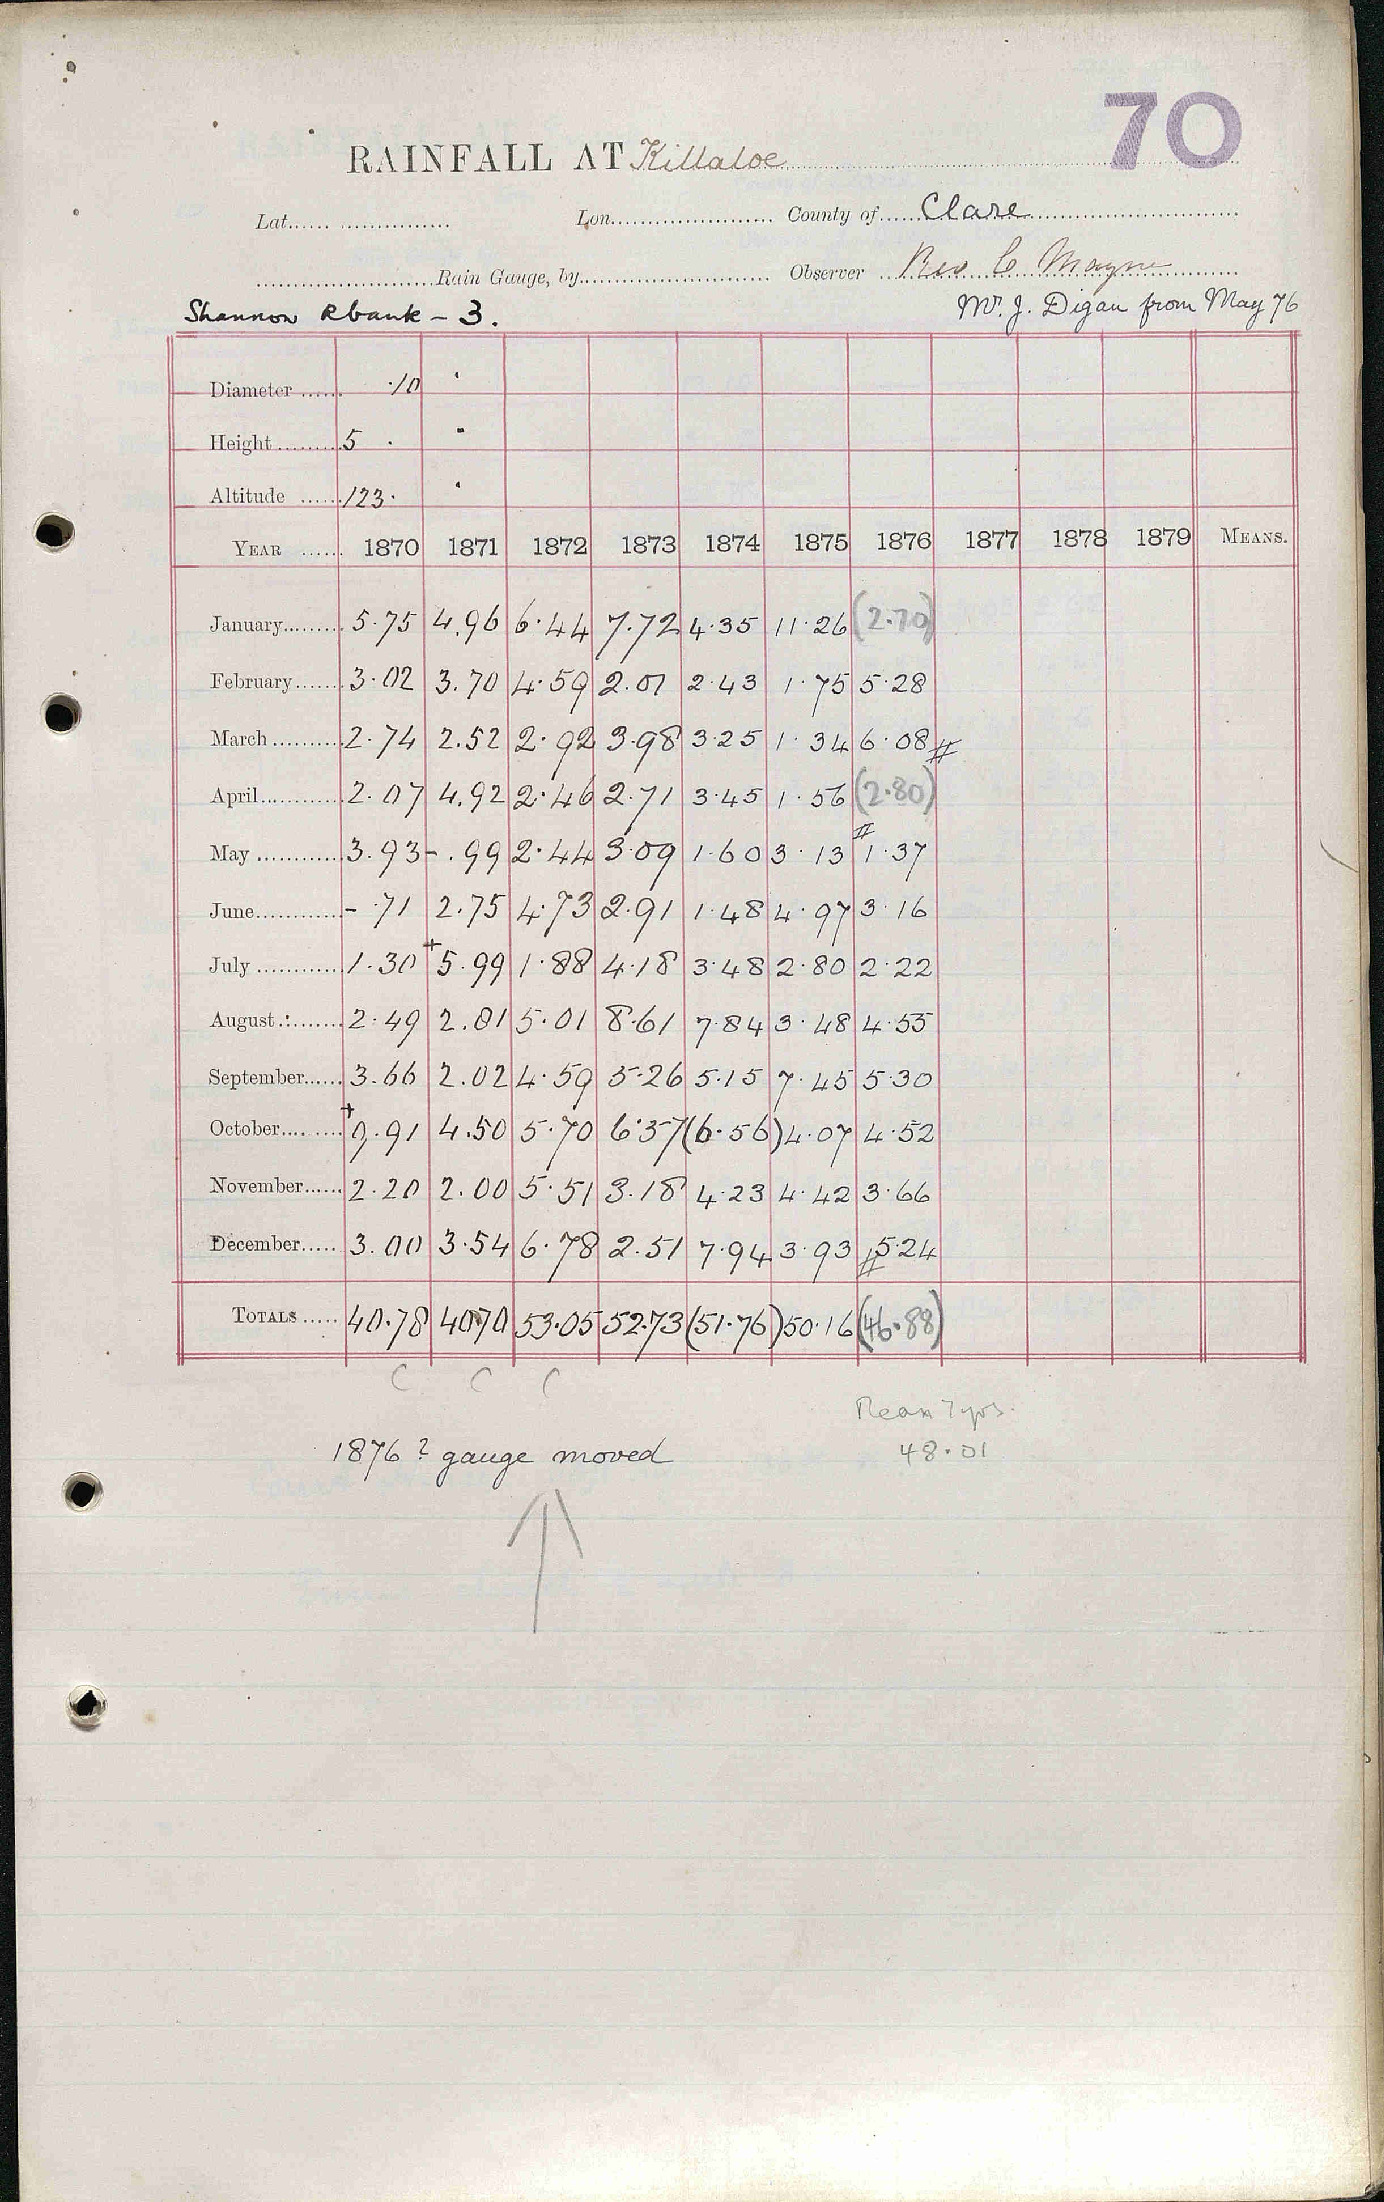 70
RAINFALL AT Killaloe
Lat. Lon. County of Clare
Rain Gauge, by Observer Rev C Mayne
Shannon Rbank - 3. Mr. J. Digan from May 76
Diameter ·10
Height 5 ·
Altitude 123·
YEAR 1870 1871 1872 1873 1874 1875 1876 1877 1878 1879 MEANS.
January 5·75 4.96 6·44 7.72 4·35 11·26 (2·70)
February 3·02 3.70 4·59 2.01 2·43 1·75 5·28
March 2·74 2.52 2·92 3.98 3·25 1·34 6·08 #
April 2·07 4.92 2·46 2.71 3·45 1·56 (2·80)
May 3.93 - .99 2·44 3·09 1·60 3·13 # 1·37
June - ·71 2.75 4·73 2.91 1·48 4·97 3·16
July 1·30 + 5.99 1·88 4·18 3·48 2·80 2·22
August 2·49 2.81 5·01 8·61 7·84 3·48 4·55
September 3.66 2.02 4·59 5·26 5·15 7·45 5·30
October + 9.91 4.50 5·70 6·37 (6·56) 4·07 4·52
November 2·20 2.00 5·51 3.18 4·23 4·42 3·66
December 3.00 3·54 6·78 2.51 7·94 3·93 # 5·24
TOTALS 40·78 40·70 53·05 52·73 (51·76) 50·16 (46·88)
Mean 7 yrs.
1876 ? gauge moved 48·01